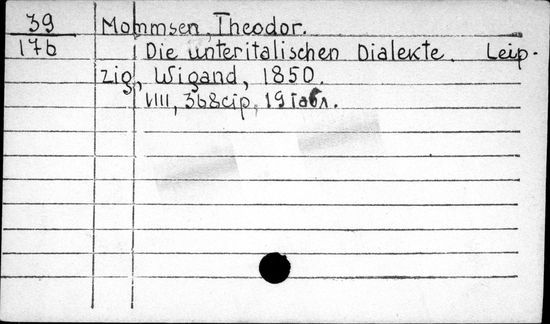 39 Mommsen, Theodor.
176 Die unteritalischen Dialekte. Leip-
zig, Wigand, 1850.
VIII, 368 стр., 19 табл.